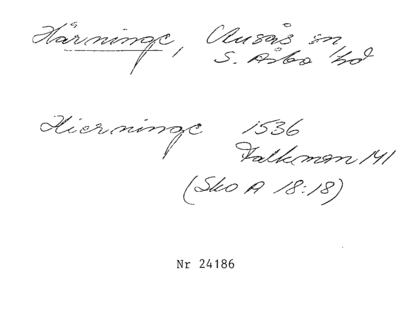 Härninge, Ausås sn
S. Åsbo hd
Hierninge 1536
Falkman 141
(Sko A 18:18)
Nr 24186